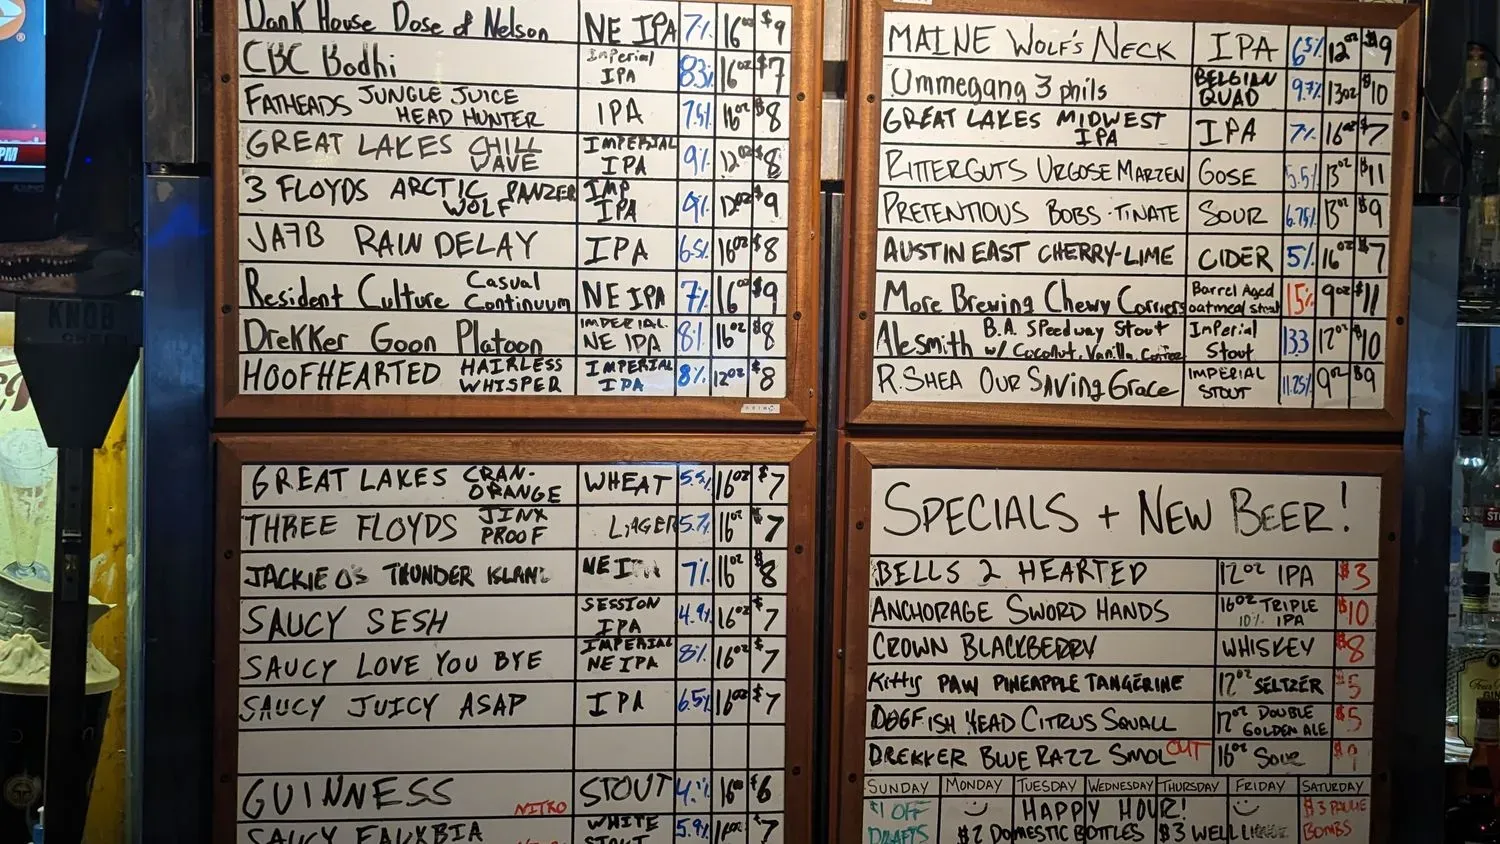 DanK House Dose of Nelson NE IPA 7% 16oz $9
CBC Bodhi Imperial IPA 8.3% 16oz $7
FATHEADS JUNGLE JUICE HEAD HUNTER IPA 7.5% 16oz $8
GREAT LAKES CHILL WAVE IMPERIAL IPA 9% 12oz $8
3 FLOYDS ARCTIC PANZER WOLF IMP IPA 9% 12oz $9
JAFB RAIN DELAY IPA 6.5% 16oz $8
Resident Culture Casual Continuum NE IPA 7% 16oz $9
DreKKer Goon Platoon IMPERIAL NE IPA 8% 16oz $8
HOOFHEARTED HAIRLESS WHISPER IMPERIAL IPA 8% 12oz $8
MAINE WOLF'S NECK IPA 6.5% 12oz $9
Ummegang 3 phils BELGIAN QUAD 9.7% 13oz $10
GREAT LAKES MIDWEST IPA IPA 7% 16oz $7
RITTERGUTS URGOSE MARZEN GOSE 5.5% 13oz $11
PRETENTIOUS BOBS·TINATE SOUR 6.75% 13oz $9
AUSTIN EAST CHERRY-LIME CIDER 5% 16oz $7
More Brewing Chewy Corners Barrel Aged oatmeal stout 15% 9oz $11
Alesmith B.A. Speedway Stout w/ Coconut, Vanilla, Coffee Imperial Stout 13.3 12oz $10
R.SHEA OUR SAVING GRACE IMPERIAL STOUT 11.25% 9oz $9
GREAT LAKES CRAN-ORANGE WHEAT 16oz $7
THREE FLOYDS JINX PROOF LAGER 16oz $7
JACKIE O'S THUNDER ISLAND NE 7% 16oz $8
SAUCY SESH SESSION IPA 4.9% 16oz $7
SAUCY LOVE YOU BYE IMPERIAL NE IPA 8% 16oz $7
SAUCY JUICY ASAP IPA 6.5% 16oz $7
GUINNESS NITRO STOUT 16oz $6
SAUCY WHITE STOUT 5.9% $7
SPECIALS + NEW BEER!
BELLS 2 HEARTED 12oz IPA $3
ANCHORAGE SWORD HANDS 16oz TRIPLE 10% IPA $10
CROWN BLACKBERRY WHISKEY $8
Kitty PAW PINEAPPLE TANGERINE 12oz SELTZER $5
DOGFISH HEAD CITRUS SQUALL 12oz DOUBLE GOLDEN ALE $5
DREKKER BLUE RAZZ SMOL OUT 16oz Sour
SUNDAY MONDAY TUESDAY WEDNESDAY THURSDAY FRIDAY SATURDAY
$1 OFF DRAFTS
HAPPY HOUR!
$2 DOMESTIC BOTTLES $3 WELL
BOMBS
KNOB
PM